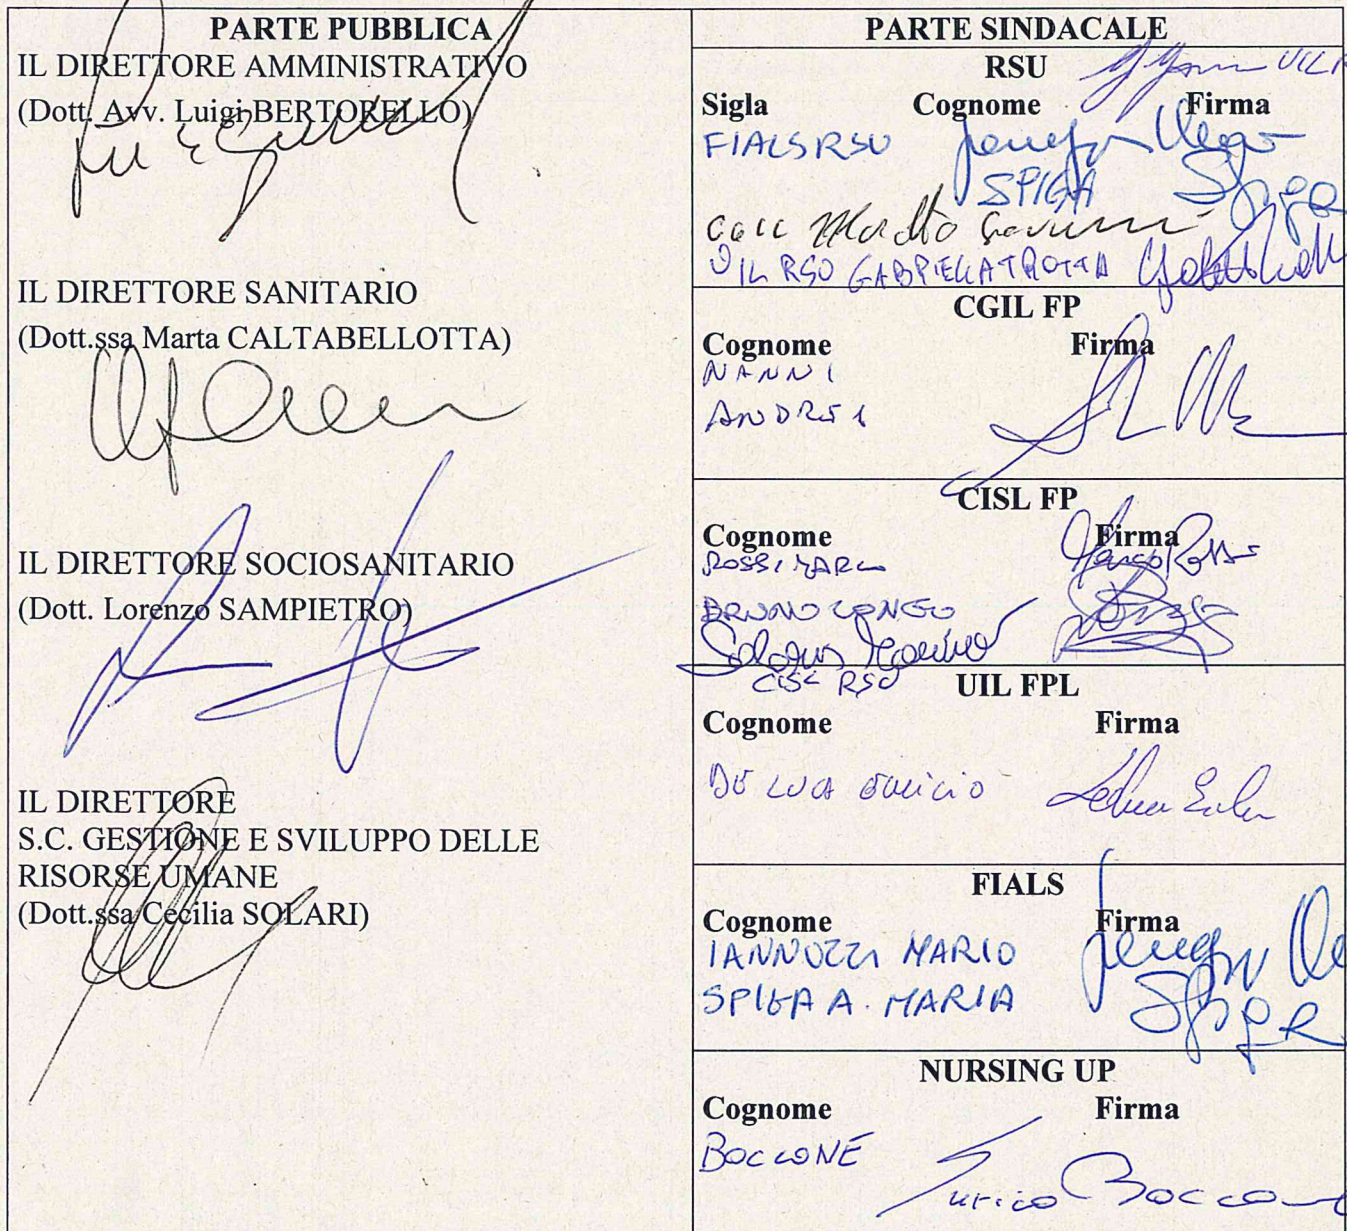 PARTE PUBBLICA
IL DIRETTORE AMMINISTRATIVO
(Dott. Avv. Luigi BERTORELLO)
IL DIRETTORE SANITARIO
(Dott.ssa Marta CALTABELLOTTA)
IL DIRETTORE SOCIOSANITARIO
(Dott. Lorenzo SAMPIETRO)
IL DIRETTORE
S.C. GESTIONE E SVILUPPO DELLE
RISORSE UMANE
(Dott.ssa Cecilia SOLARI)
PARTE SINDACALE
RSU
Sigla Cognome Firma
FIALS RSU
SPIGA Spiga
UIL RSU GABRIELLA TROTTA
CGIL FP
Cognome Firma
NANNI
ANDREA
CISL FP
Cognome Firma
ROSSI MARCO Marco Rossi
BRUNO LONGO
CISL RSU
UIL FPL
Cognome Firma
DE LUCA
FIALS
Cognome Firma
IANNUZZI MARIO
SPIGA A. MARIA Spiga
NURSING UP
Cognome Firma
BOCCONE Enrico Boccone